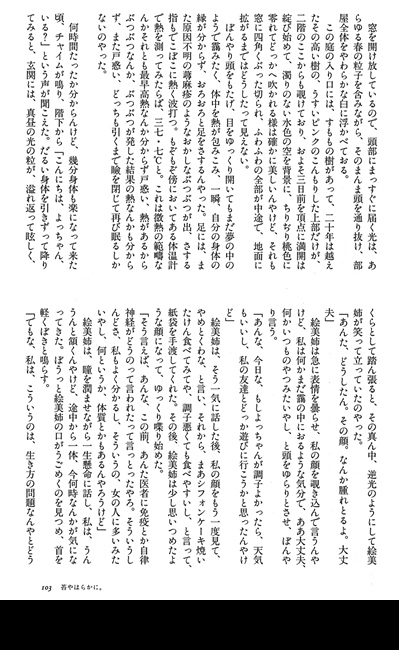 窓を開け放しているので、頭部にまっすぐに届く光は、あ
らゆる春の粒子を含みながら、そのまんま頭を通り抜け、部
屋全体をやわらかな白に浮かべておる。
この庭の入り口には、すももの樹があって、二十年は越え
たその高い樹の、うすいピンクのこんもりした上部だけが、
二階のここからも覗けており、およそ三日前を頂点に満開は
綻び始めて、濁りのない水色の空を背景に、ちりぢり桃色に
零れてどっかへ吹かれる様は確かに美しいんやけど、それも
窓に四角くぶった切られ、ふわふわの全部が中途で、地面に
拡がるまではどうしたって見えない。
ぼんやり頭をもたげ、目をゆっくり開いてもまだ夢の中の
ようで霞みたく、体中を熱が包みこみ、一瞬、自分の身体の
縁が分からず、おろおろと足をさするんやった。足には、ま
た原因不明の蕁麻疹のようなおかしなぶつぶつが出、さする
指もでこぼこに熱く波打つ。もぞもぞ傍においてある体温計
で熱を測ってみたらば、三七・七℃と。これは微熱の範疇な
んかそれとも最早高熱なんか分からず戸惑い、熱があるから
ぶつぶつなんか、ぶつぶつが発した結果の熱なんかも分から
ず、また戸惑い、どっちも引くまで瞼を閉じて再び眠るしか
ないのやった。
何時間たったか分からんけど、幾分身体も楽になって来た
頃、チャイムが鳴り、階下から「こんにちは、よっちゃん、
いる?」という声が聞こえた。だるい身体を引きずって降り
てみると、玄関には、真昼の光の粒が、溢れ返って眩しく、
くらとして踏ん張ると、その真ん中、逆光のようにして絵美
姉が笑って立っていたのやった。
「あんた、どうしたん。その顔。なんか腫れとるよ。大丈
夫」
絵美姉は急に表情を曇らせ、私の顔を覗き込んで言うんや
けど、私は何かまだ靄の中におるような気分で、ああ大丈夫、
何かいつものやつみたいやし、と頭をゆらりとさせ、ぼんや
り言う。
「あんな、今日な、もしよっちゃんが調子よかったら、天気
もいいし、私の友達とどっか遊びに行こうかと思ったんやけ
ど」
絵美姉は、そう一気に話した後、私の顔をもう一度見て、
やめとくわな、と言い、それから、まあシフォンケーキ焼い
たけん食べてみてや、調子悪くても食べやすいし、と言って、
紙袋を手渡してくれた。その後、絵美姉は少し思いつめたよ
うな顔になって、ゆっくり喋り始めた。
「そう言えば、あんな、この前、あんた医者に免疫とか自律
神経がどうのって言われたって言っとったやろ。そういうし
んどさ、私もよく分かるし、そういうの、女の人に多いみた
いやし、何というか、体質とかもあるんやろうけど」
絵美姉は、瞳を潤ませながら一生懸命に話し、私は、うん
うんと頷くんやけど、途中から一体、今何時なんかが気にな
ってきた。ぼうっと絵美姉の口がうごめくのを見つめ、首を
軽くぽきと鳴らす。
「でもな、私は、こういうのは、生き方の問題なんやとどう
103 苔やはらかに。